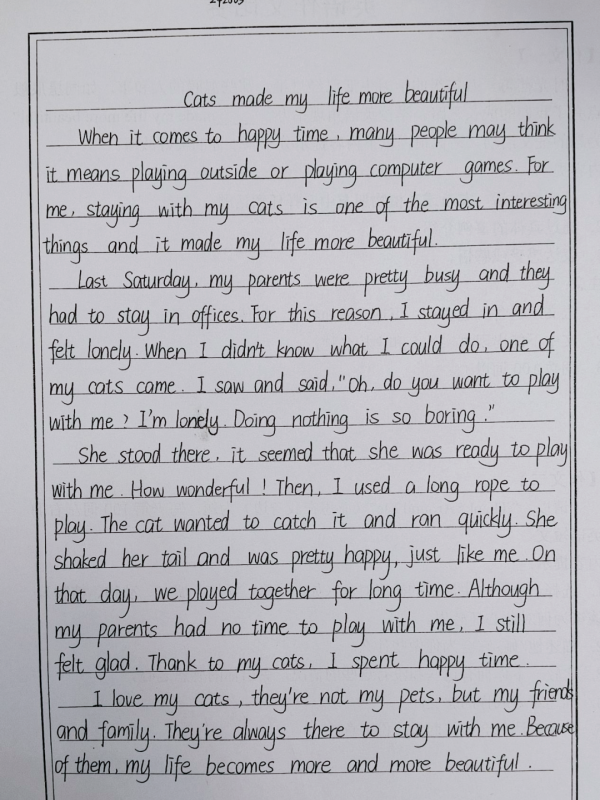 Cats made my life more beautiful
When it comes to happy time, many people may think
it means playing outside or playing computer games. For
me, staying with my cats is one of the most interesting
things and it made my life more beautiful.
Last Saturday, my parents were pretty busy and they
had to stay in offices. For this reason, I stayed in and
felt lonely. When I didn't know what I could do, one of
my cats came. I saw and said, "Oh, do you want to play
with me? I'm lonely. Doing nothing is so boring."
She stood there, it seemed that she was ready to play
with me. How wonderful! Then, I used a long rope to
play. The cat wanted to catch it and ran quickly. She
shaked her tail and was pretty happy, just like me. On
that day, we played together for long time. Although
my parents had no time to play with me, I still
felt glad. Thank to my cats, I spent happy time.
I love my cats, they're not my pets, but my friends
and family. They're always there to stay with me. Because
of them, my life becomes more and more beautiful.